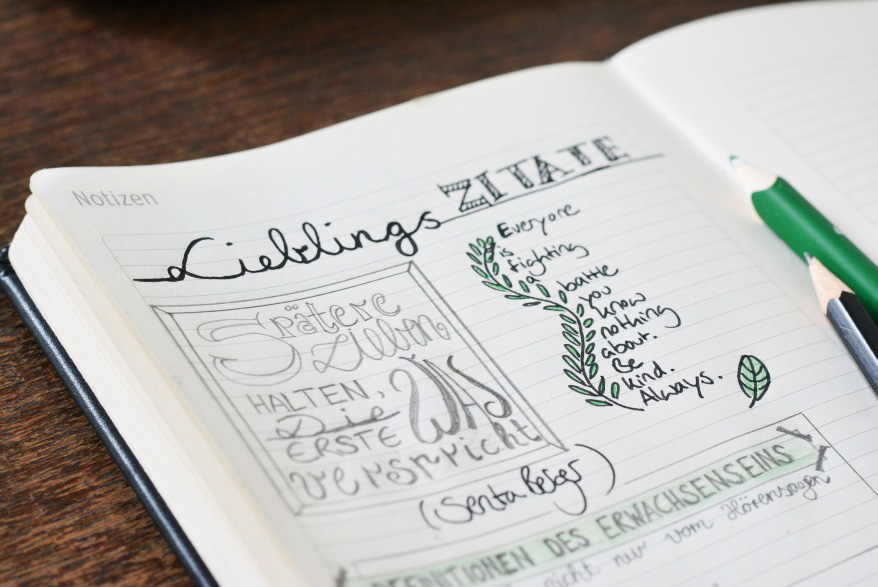 Notizen
Lieblings ZITATE
Spätere
Zeilen
HALTEN, WAS
Die
ERSTE
verspricht
(Senta Berger)
Everyone
is
fighting
a
battle
you
know
nothing
about.
Be
kind.
Always.
DEFINITIONEN DES ERWACHSENSEINS
nicht nur vom Hörensagen